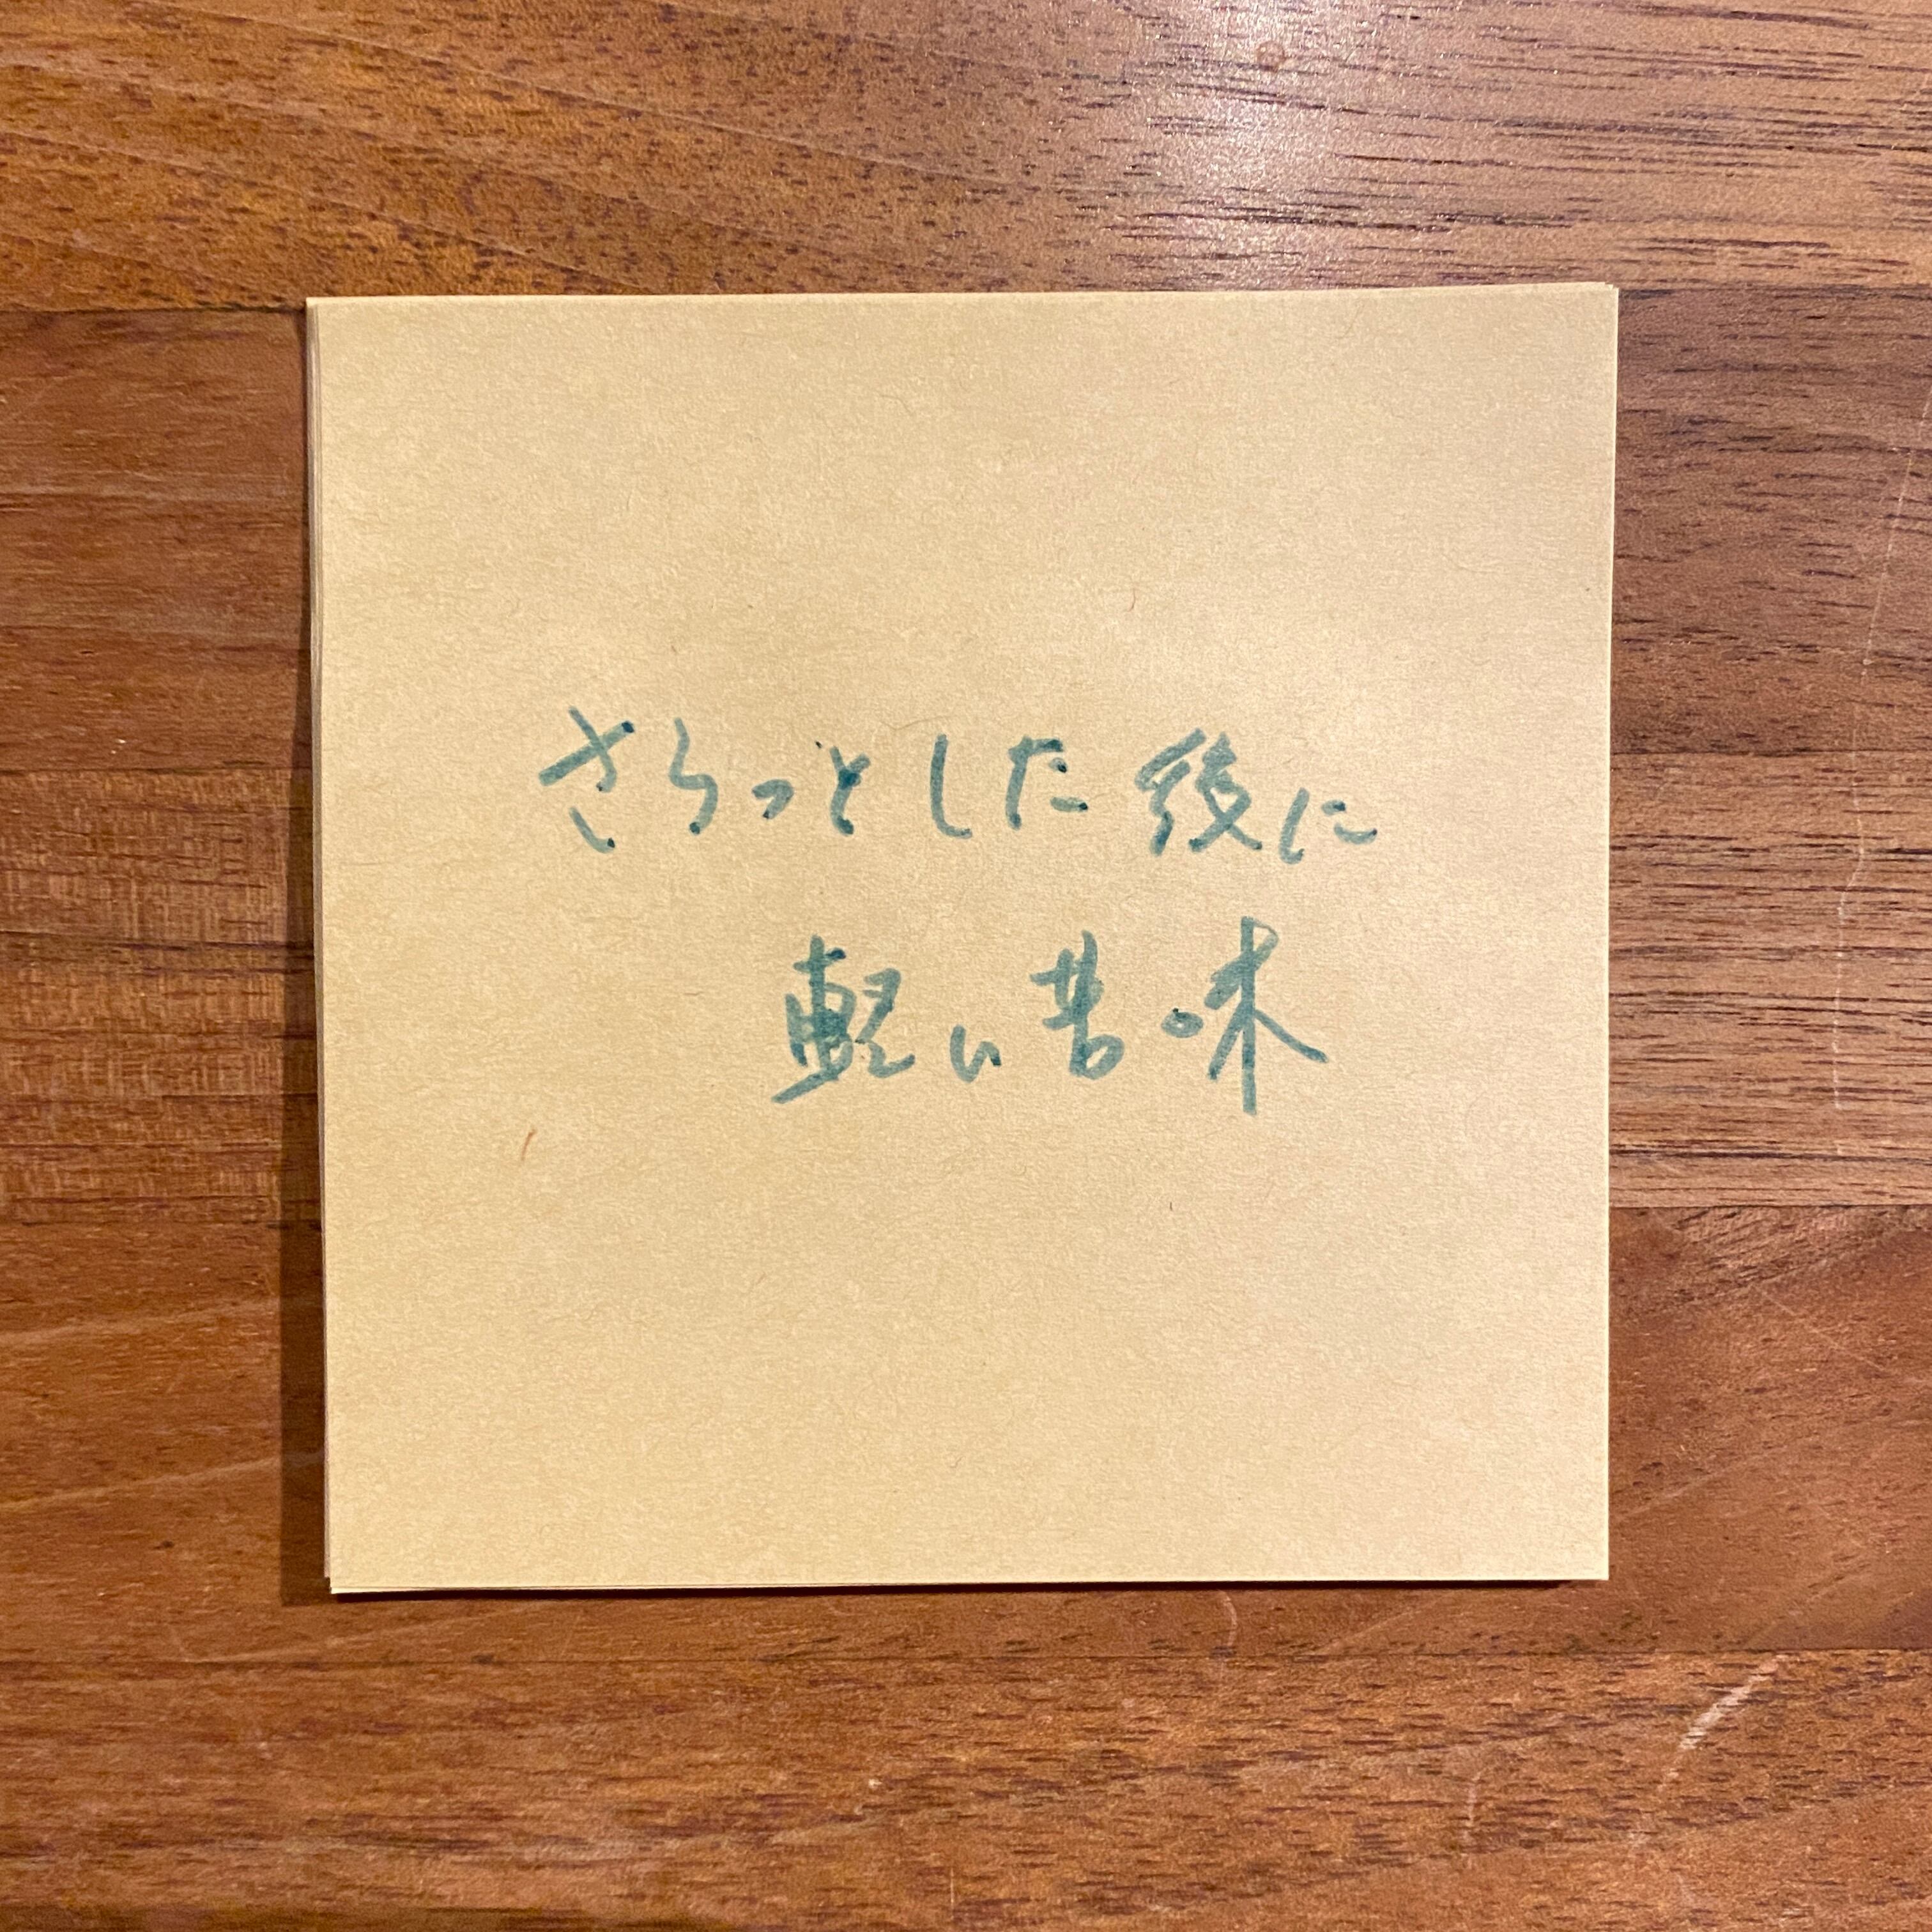 さらっとした後に
軽い苦味